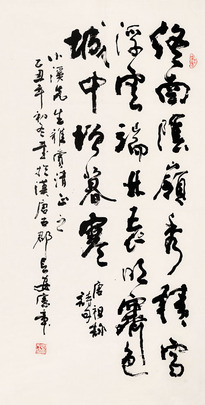 終南陰嶺秀積雪
浮雲端林表明霽色
城中增暮寒
唐祖詠
詩句
先生雅賞清正之
丑年初冬書於漢唐古郡